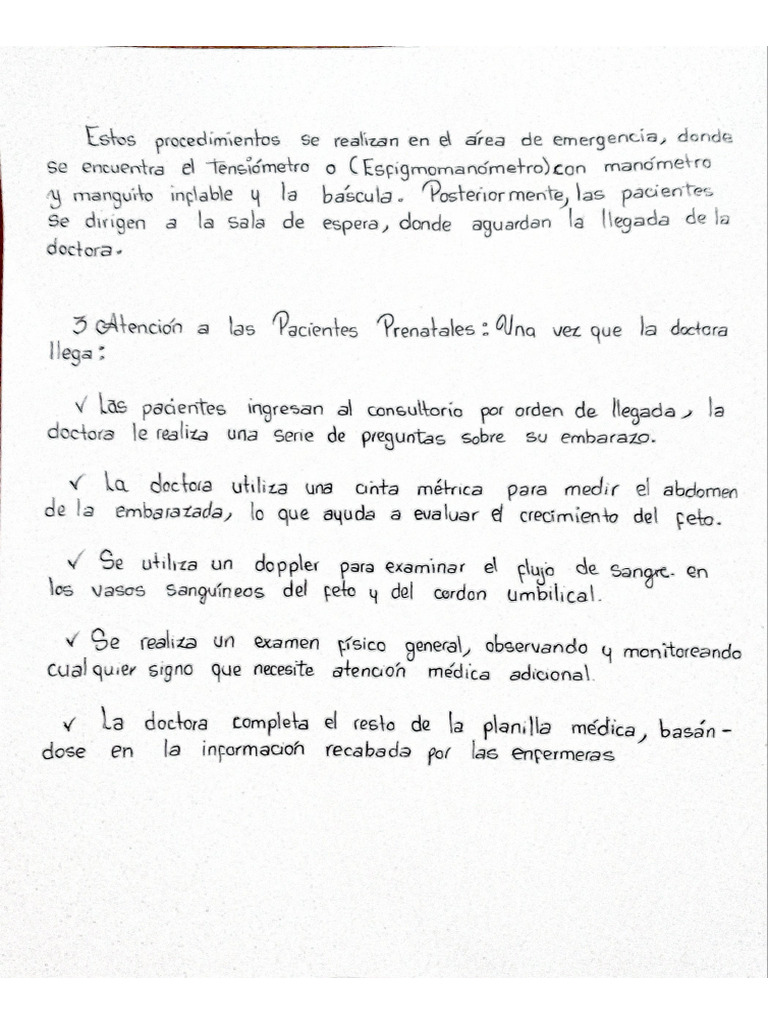 Estos procedimientos se realizan en el área de emergencia, donde
se encuentra el Tensiómetro o (Esfigmomanómetro) con manómetro
y manguito inflable y la báscula. Posteriormente, las pacientes
se dirigen a la sala de espera, donde aguardan la llegada de la
doctora.
3 Atención a las Pacientes Prenatales: Una vez que la doctora
llega:
✓ Las pacientes ingresan al consultorio por orden de llegada, la
doctora le realiza una serie de preguntas sobre su embarazo.
✓ La doctora utiliza una cinta métrica para medir el abdomen
de la embarazada, lo que ayuda a evaluar el crecimiento del feto.
✓ Se utiliza un doppler para examinar el flujo de sangre. en
los vasos sanguíneos del feto y del cordon umbilical.
✓ Se realiza un examen físico general, observando y monitoreando
cualquier signo que necesite atención médica adicional.
✓ La doctora completa el resto de la planilla médica, basán-
dose en la información recabada por las enfermeras